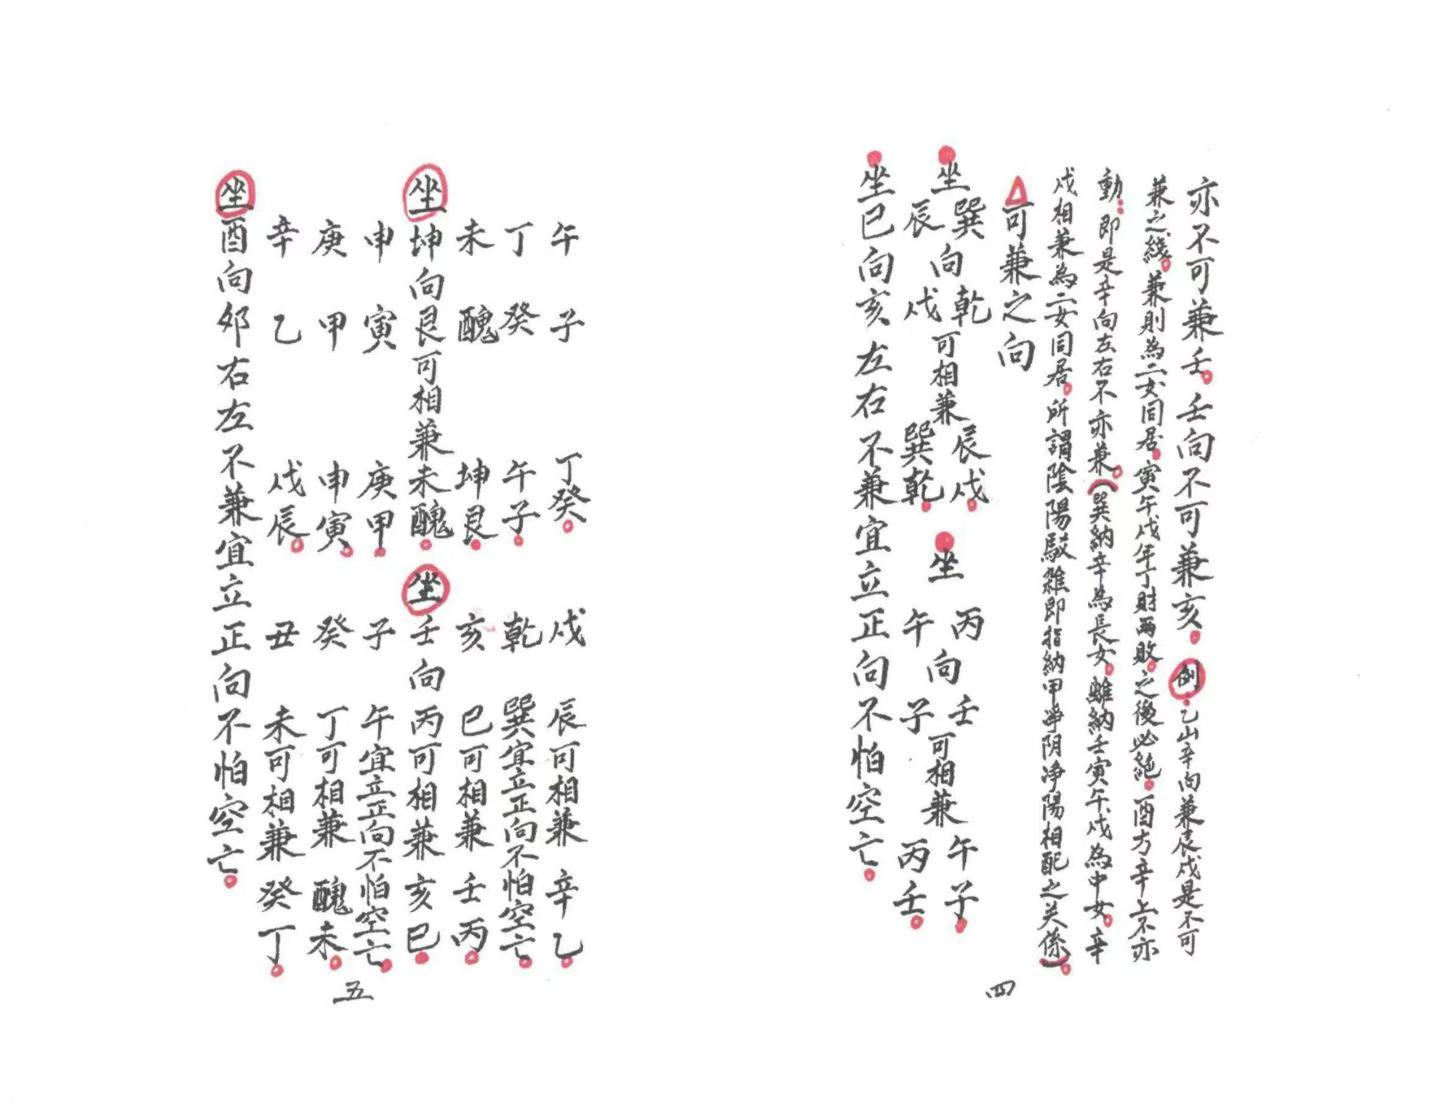 亦不可兼壬。壬向不可兼亥。例:乙山辛向兼辰戌是不可
兼之綫。兼則為二女同居。寅午戌年丁財两敗。之後必絕。酉方辛上不亦
動:即是辛向左右不亦兼。(巽納辛為長女。離納壬寅午戌為中女。辛
戌相兼為二女同居。所謂陰陽駁雜即指納甲凈阴净陽相配之关係)。
△可兼之向
坐巽向乾可相兼辰戌。坐丙向壬可相兼午子。
辰戌巽乾。午子丙壬。
坐巳向亥左右不兼宜立正向不怕空亡。
四
午子丁癸。戌辰可相兼辛乙。
丁癸午子。乾巽宜立正向不怕空亡。
未醜坤艮。亥巳可相兼壬丙。
坐坤向艮可相兼未醜。坐壬向丙可相兼亥巳。
申寅庚甲。子午宜立正向不怕空亡。
庚甲申寅。癸丁可相兼醜未。
辛乙戌辰。丑未可相兼癸丁。
坐酉向邜右左不兼宜立正向不怕空亡。
五